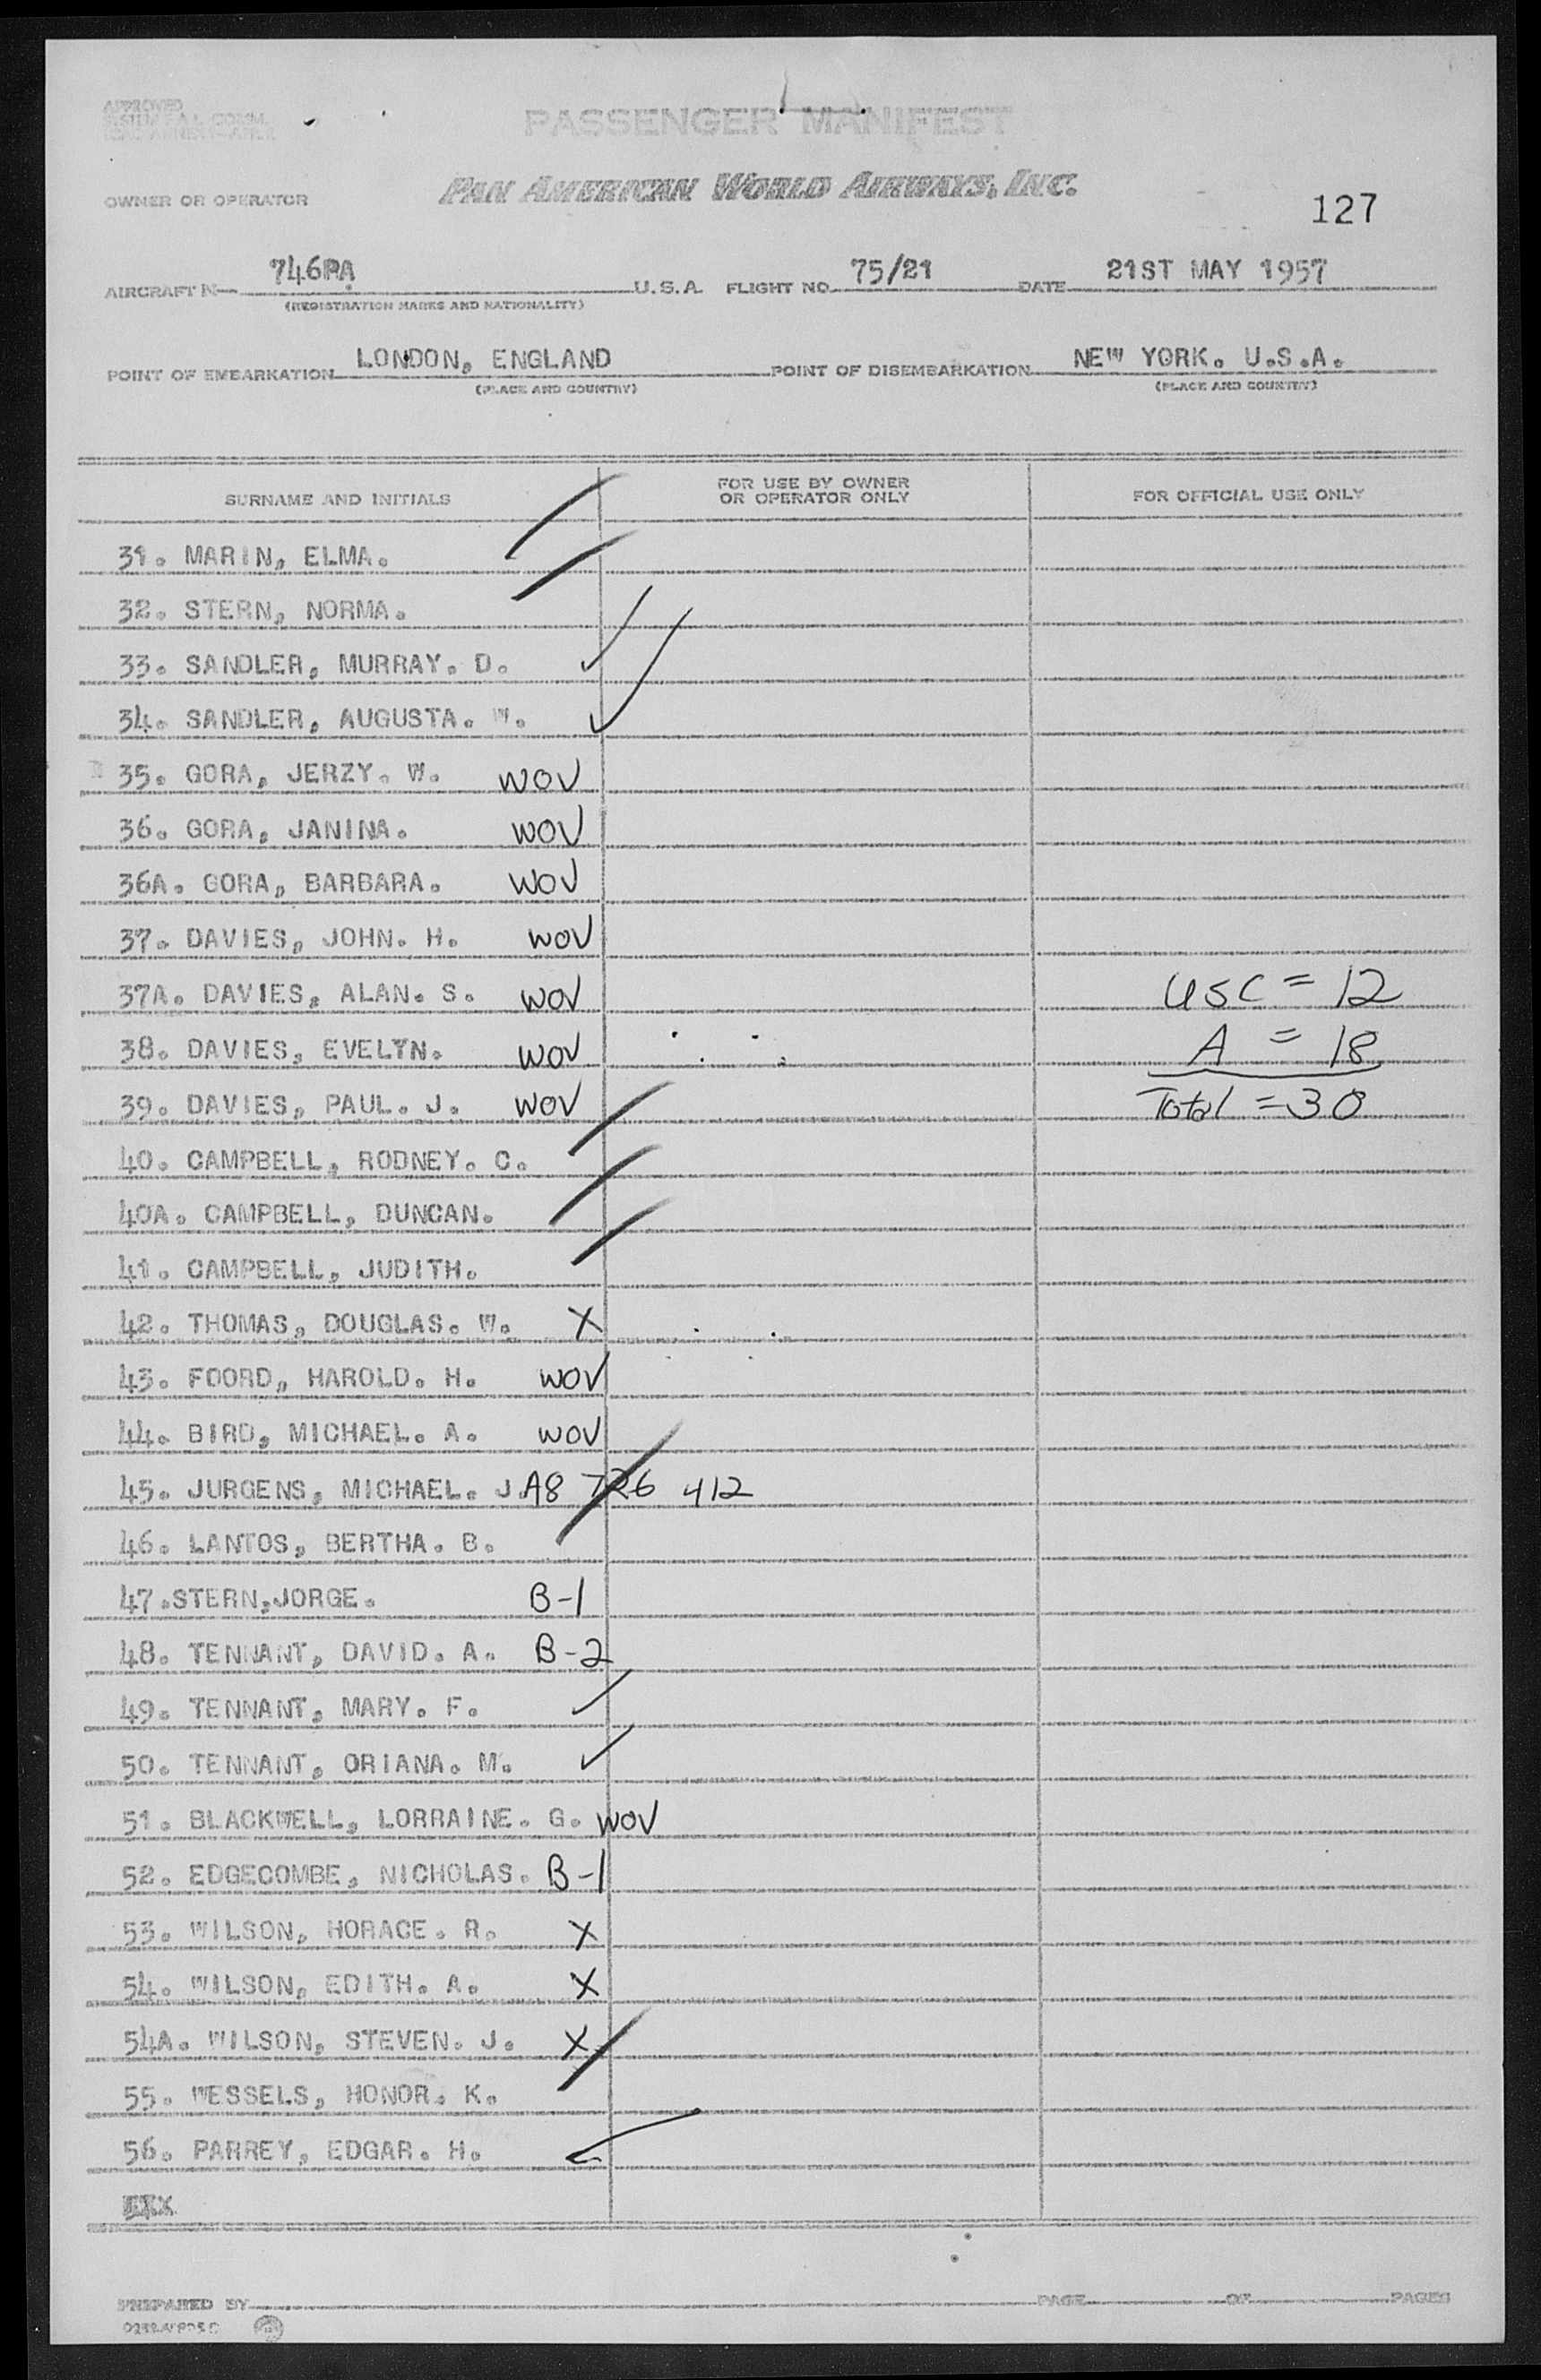 APPROVED
PASSENGER MANIFEST
OWNER OR OPERATOR
PAN AMERICAN WORLD AIRWAYS, INC.
127
AIRCRAFT N— 746PA U.S.A. FLIGHT NO. 75/21 DATE 21ST MAY 1957
(REGISTRATION MARKS AND NATIONALITY)
POINT OF EMBARKATION LONDON, ENGLAND POINT OF DISEMBARKATION NEW YORK. U.S.A.
(PLACE AND COUNTRY) (PLACE AND COUNTRY)
SURNAME AND INITIALS FOR USE BY OWNER OR OPERATOR ONLY FOR OFFICIAL USE ONLY
31. MARIN, ELMA.
32. STERN, NORMA.
33. SANDLER, MURRAY. D.
34. SANDLER, AUGUSTA. W.
35. GORA, JERZY. W. WOV
36. GORA, JANINA. WOV
36A. GORA, BARBARA. WOV
37. DAVIES, JOHN. H. WOV
37A. DAVIES, ALAN. S. WOV USC = 12
38. DAVIES, EVELYN. WOV A = 18
39. DAVIES, PAUL. J. WOV Total = 30
40. CAMPBELL, RODNEY. C.
40A. CAMPBELL, DUNCAN.
41. CAMPBELL, JUDITH.
42. THOMAS, DOUGLAS. W. X
43. FOORD, HAROLD. H. WOV
44. BIRD, MICHAEL. A. WOV
45. JURGENS, MICHAEL. J. A8 726 412
46. LANTOS, BERTHA. B.
47.STERN,JORGE. B-1
48. TENNANT, DAVID. A. B-2
49. TENNANT, MARY. F.
50. TENNANT, ORIANA. M.
51. BLACKWELL, LORRAINE. G. WOV
52. EDGECOMBE, NICHOLAS. B-1
53. WILSON, HORACE. R. X
54. WILSON, EDITH. A. X
54A. WILSON, STEVEN. J. X
55. WESSELS, HONOR. K.
56. PARREY, EDGAR. H.
PREPARED BY PAGE OF PAGES